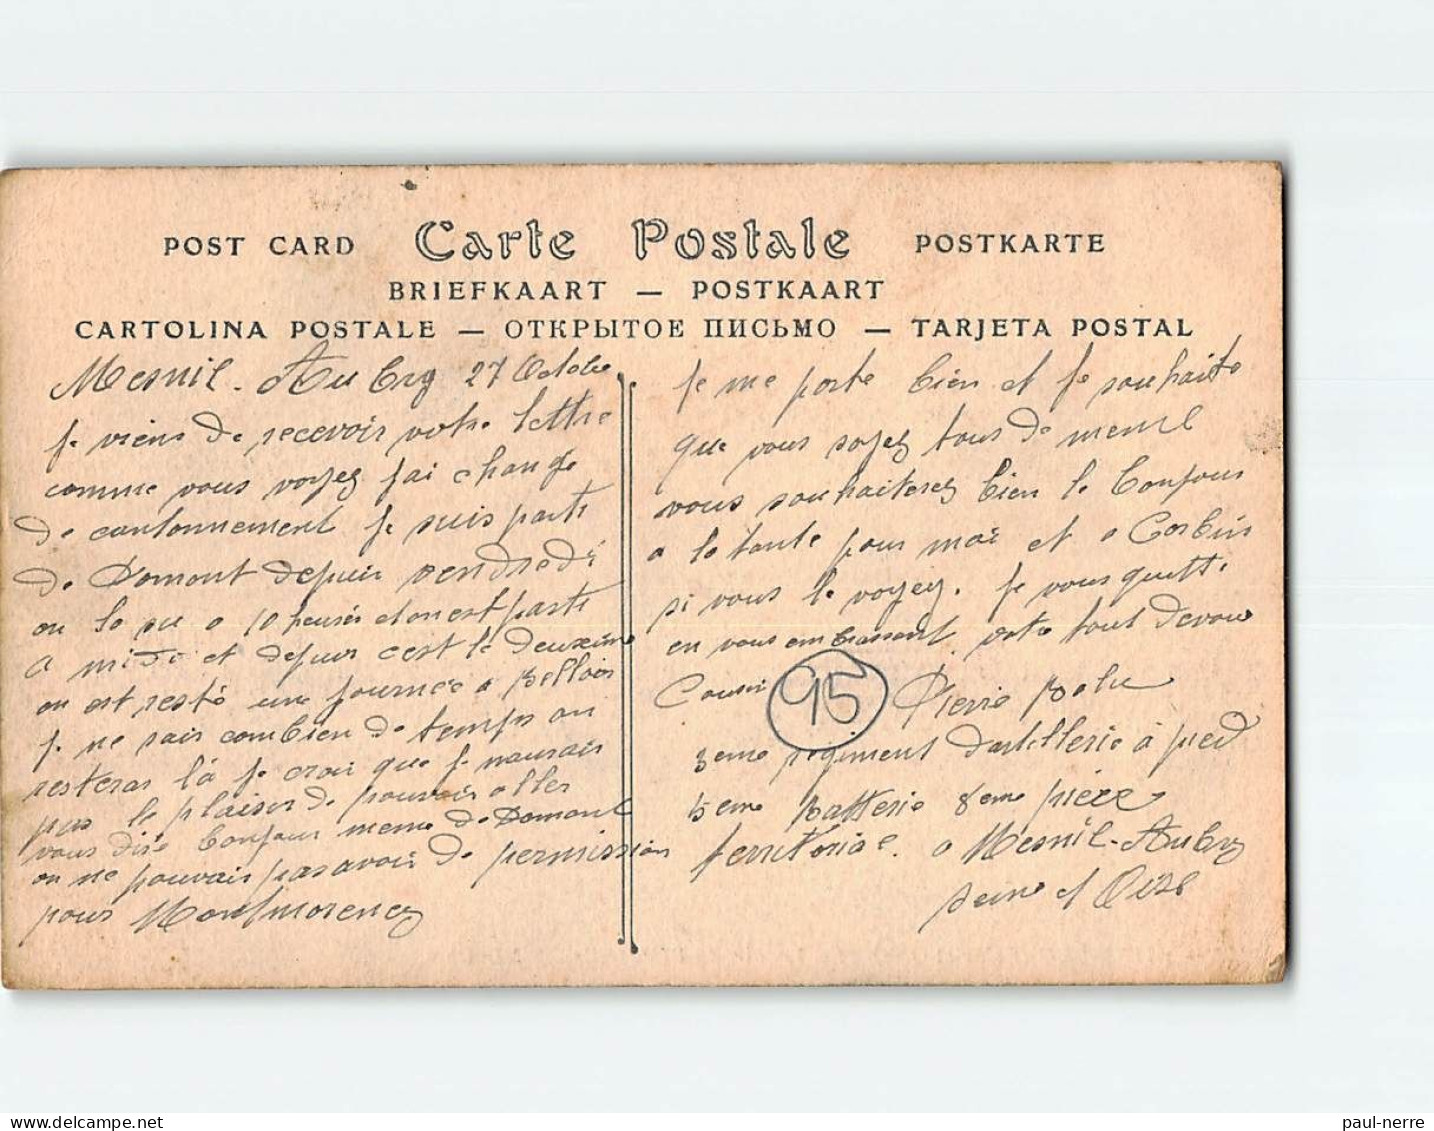 POST CARD Carte Postale POSTKARTE
BRIEFKAART — POSTKAART
CARTOLINA POSTALE — ОТКРЫТОЕ ПИСЬМО — TARJETA POSTAL
Mesnil-Aubry 27 Octobre
je viens de recevoir votre lettre
comme vous voyez jai change
de cantonnement je suis parti
de Domont depuis vendredi
on la su a 10 heures et on est parti
a midi et depuis cest le deuxième
on est resté une journée a Bellois
je ne sais combien de temps on
resteras là je crois que je naurais
pas le plaisir de pouvoir aller
vous dire bonjour meme de Domont
on ne pouvais pas avoir de permission
pour Montmorency
je me porte bien et je souhaite
que vous soyez tous de meme
vous souhaiterez bien le bonjour
a la tante pour moi et a Corbin
si vous le voyez. je vous quitte
en vous embrassant votre tout devoue
Cousin Pierre
95
3eme régiment dartillerie à pied
5eme Batterie 8eme pièce
territoriale. a Mesnil-Aubry
Seine et Oise
paul-nerre